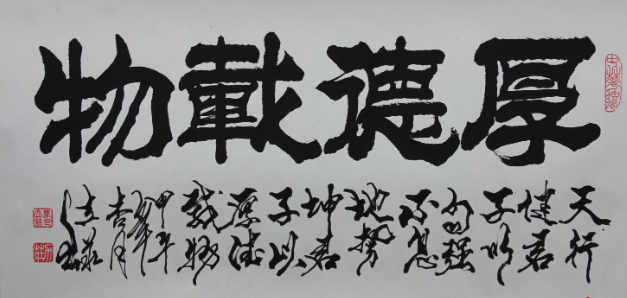 厚德載物
天行
健君
子以
自强
不息
地势
坤君
子以
厚德
载物
甲午
年
杏月